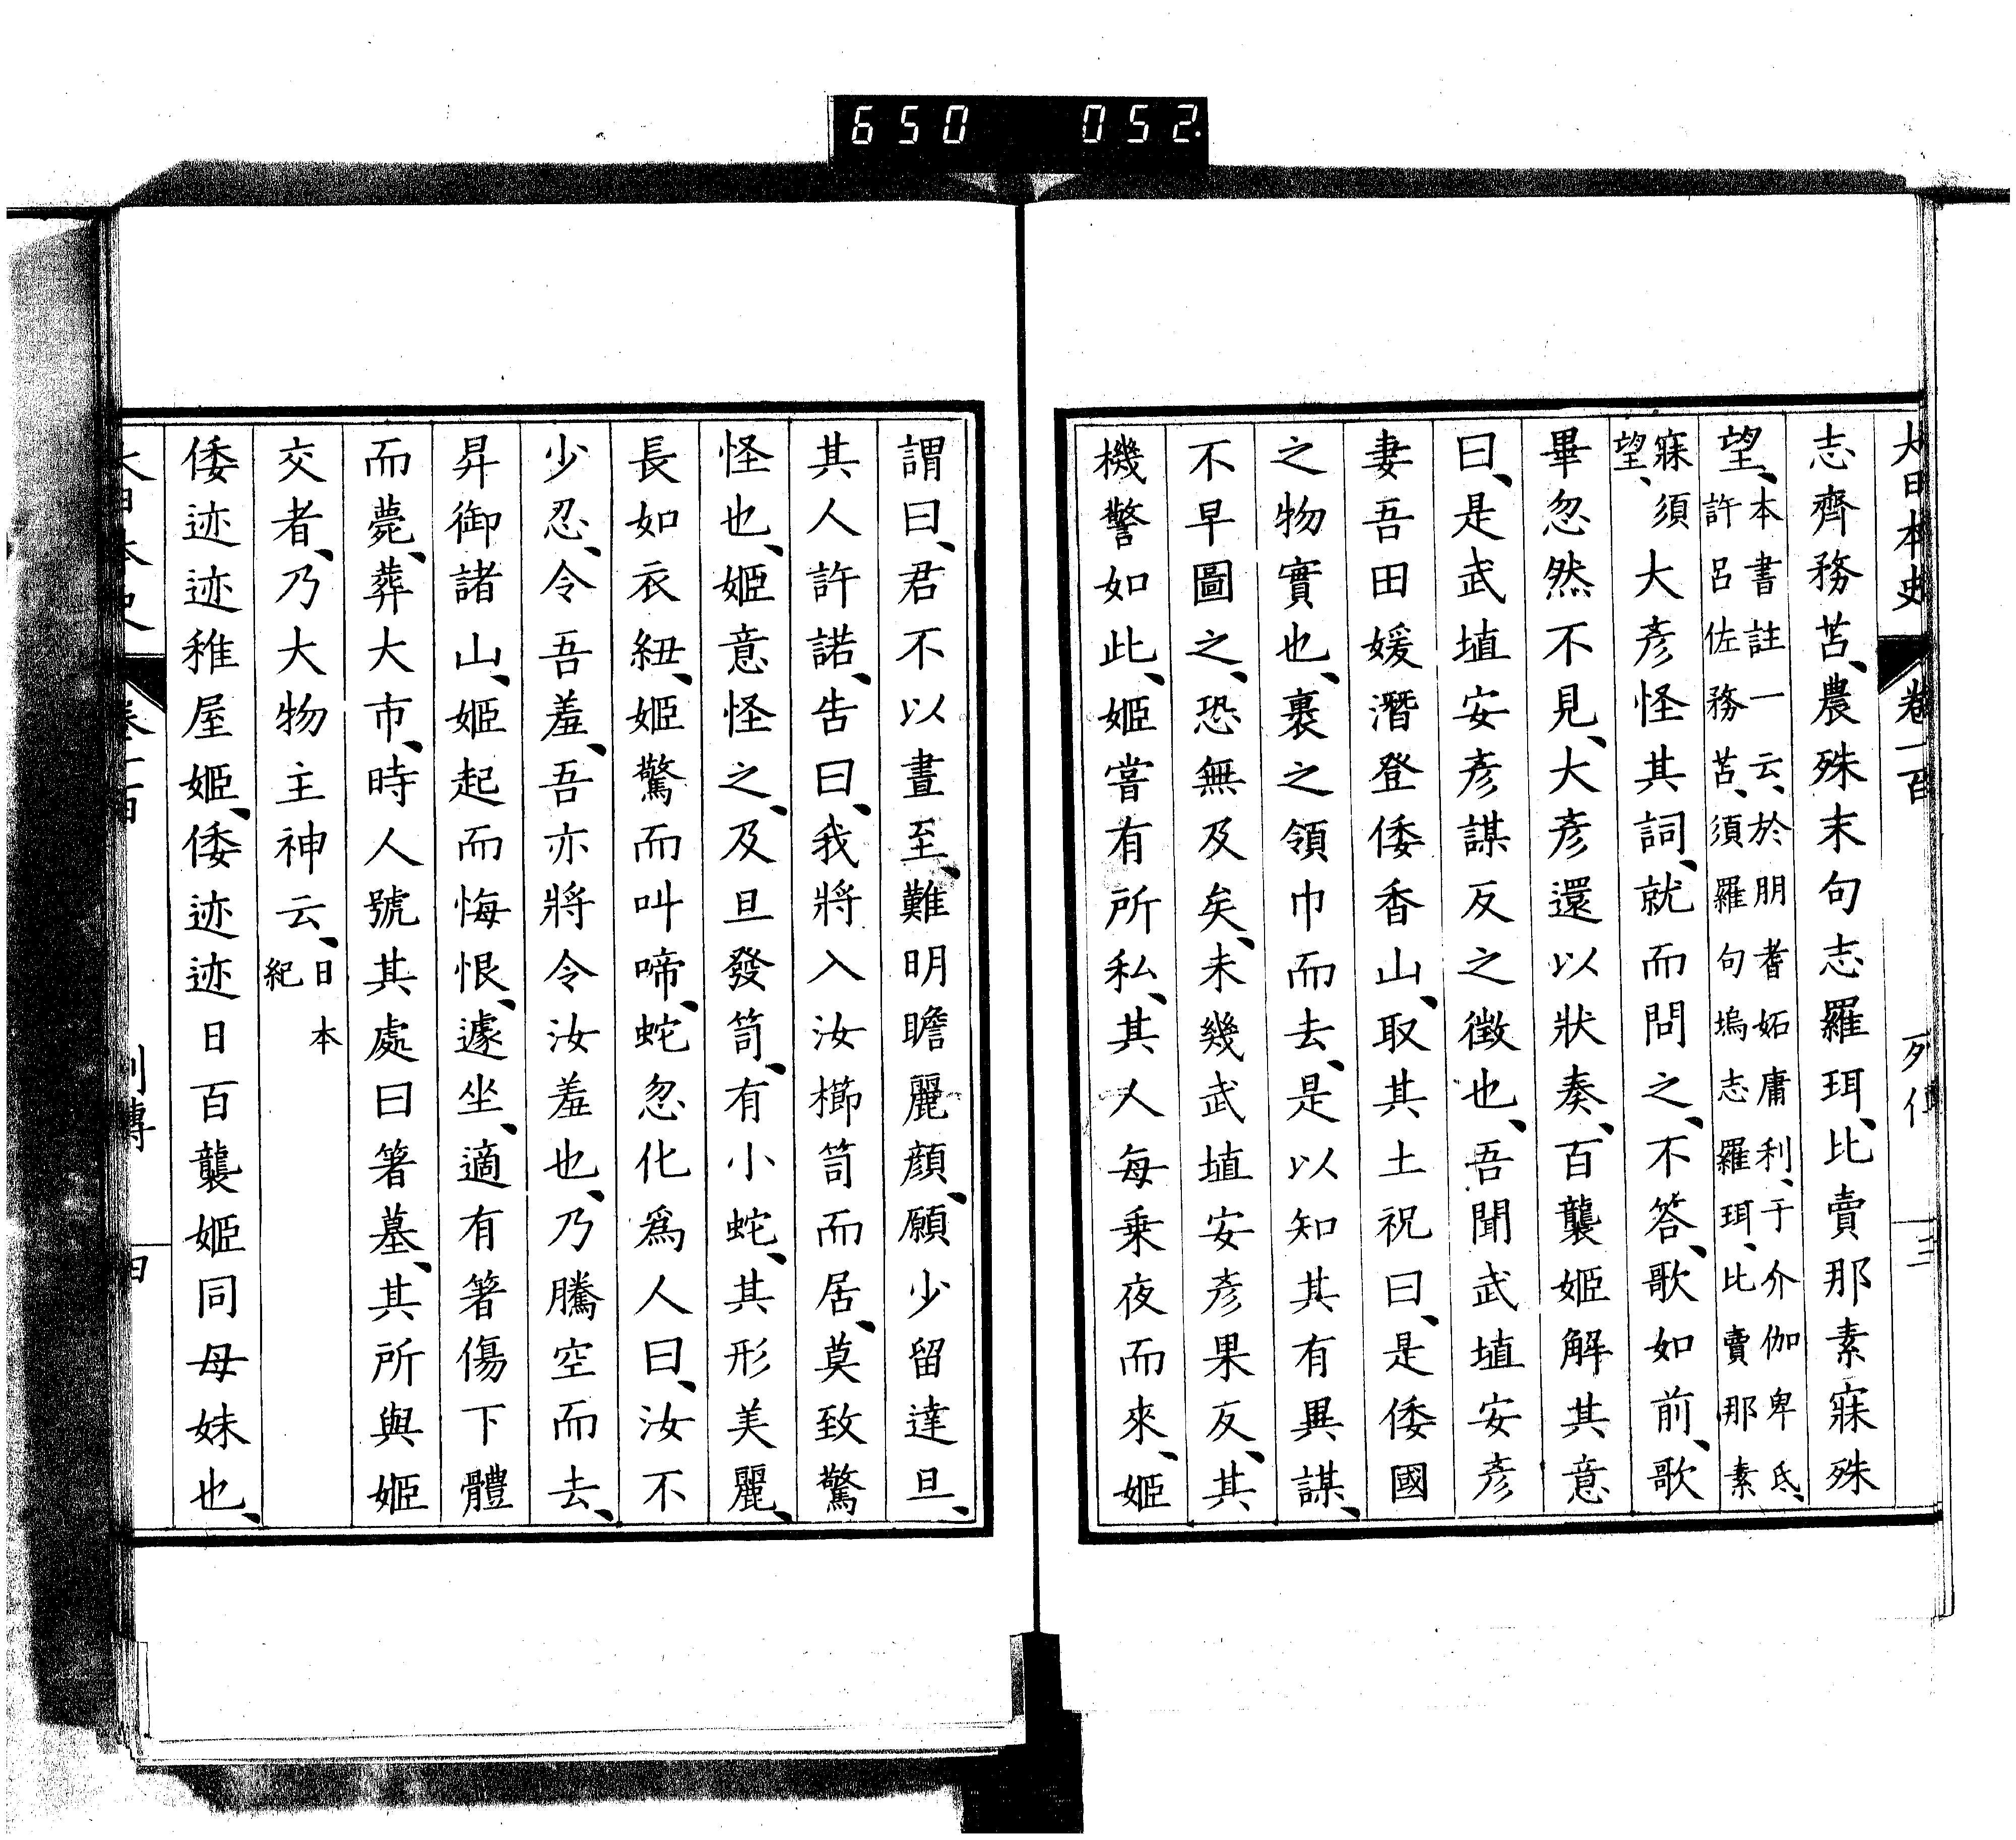 650 052
大日本史 卷一百 列傳 三
志齊務苫、農殊末句志羅珥、比賣那素寐殊
望、本書註一云、於朋耆妬庸利、于介伽卑氐、許呂佐務苫、須羅句塢志羅珥、比賣那素
寐須望、大彦怪其詞、就而問之、不答、歌如前、歌
畢忽然不見、大彦還以狀奏、百襲姬解其意
曰、是武埴安彦謀反之徵也、吾聞武埴安彦
妻吾田媛潛登倭香山、取其土祝曰、是倭國
之物實也、裹之領巾而去、是以知其有異謀、
不早圖之、恐無及矣、未幾武埴安彦果反、其
機警如此、姬嘗有所私、其人每乗夜而來、姬
謂曰、君不以晝至、難明瞻麗顔、願少留達旦、
其人許諾、告曰、我將入汝櫛笥而居、莫致驚
怪也、姬意怪之、及旦發笥、有小蛇、其形美麗、
長如衣紐、姬驚而叫啼、蛇忽化爲人曰、汝不
少忍、令吾羞、吾亦將令汝羞也、乃騰空而去、
昇御諸山、姬起而悔恨、遽坐、適有箸傷下體
而薨、葬大市、時人號其處曰箸墓、其所與姬
交者、乃大物主神云、日本紀
倭迹迹稚屋姬、倭迹迹日百襲姬同母妹也、
大日本史 卷一百 列傳 四